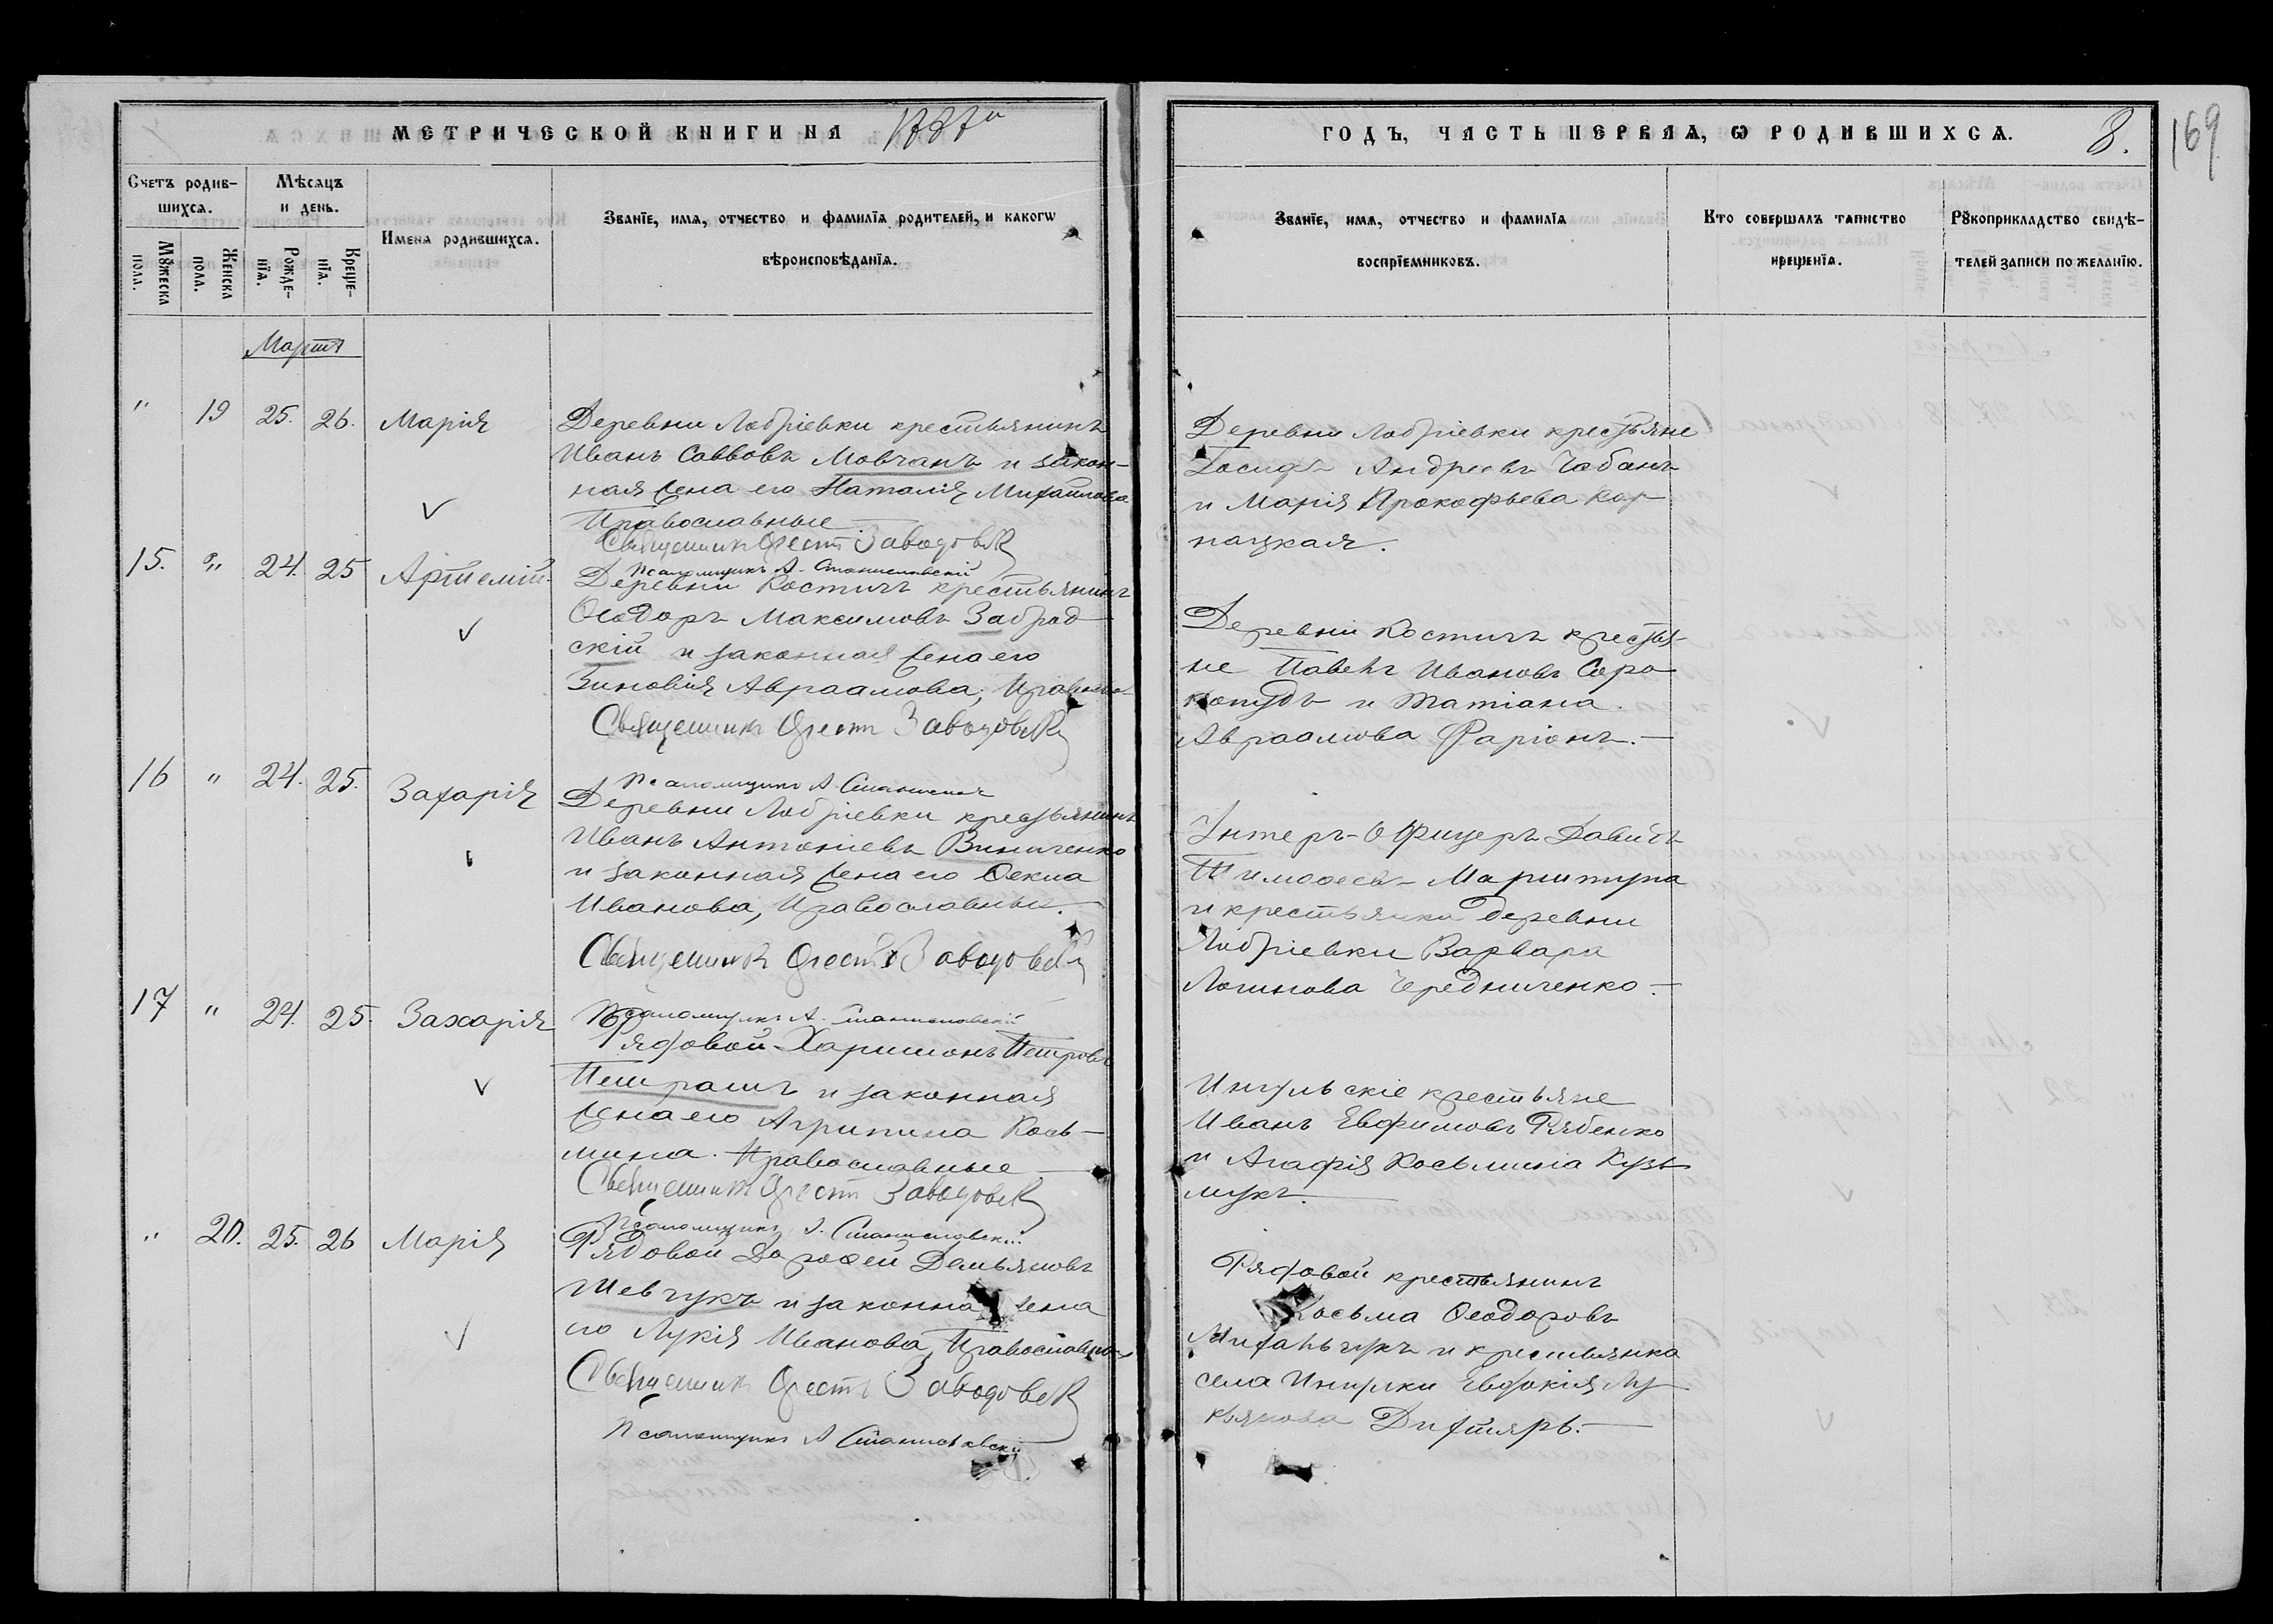 МЕТРИЧЕСКОЙ КНИГИ НА 1887й
ГОДЪ, ЧАСТЬ ПЕРВАЯ, Ѡ РОДИВШИХСѦ. 8.
169
Счетъ родив-
шихсѧ.
Мѣсяцъ
и день.
Мꙋжеска
пола.
Женска
пола.
Рожде-
нїя.
Креще-
нїя.
Имена родившихсѧ.
Званїе, имѧ, отчество и фамилїѧ родителей, и какогѡ
вѣроисповѣданїѧ.
Званїе, имѧ, отчество и фамилїѧ
воспрїемниковъ.
Кто совершалъ таинство
крещенїѧ.
Рꙋкоприкладство свидѣ-
телей записи по желанїю.
Мартъ
" 19 25. 26. Марія
Деревни Любріевки крестьянинъ
Иванъ Саввовъ Мовчанъ и закон-
ная жена его Наталія Михайлова
Православные
Священникъ Орестъ Заводовск
Псаломщикъ А. Станиславскій
Деревни Любріевки крестьяне
Іосифъ Андреевъ Чабанъ
и Марія Прокофьева Кор
нацкая.
15. " 24. 25 Артемій
Деревни Костичъ крестьянинъ
Ѳеодоръ Максимовъ Заброд
скій и законная жена его
Зиновія Авраамова, Правосл
Священникъ Орестъ Заводовск
Псаломщикъ А. Станислав
Деревни Костичъ крестья-
не Павелъ Ивановъ Соро
копудъ и Татіана
Авраамова Фаріонъ.
16 " 24. 25. Захарія
Деревни Любріевки крестьянинъ
Иванъ Антоніевъ Виниченко
и законная жена его Ѳекла
Иванова, Православные.
Священникъ Орестъ Заводовскій
Псаломщикъ А. Станиславскій
Унтеръ-Офицеръ Давидъ
Тимоѳеевъ Маршнура
и крестьянка деревни
Любріевки Варвара
Логинова Чередниченко.
17 " 24. 25. Захарія
Рядовой Харитонъ Петровъ
Петрашъ и законная
жена его Агрипина Кось-
мина. Православные
Священникъ Орестъ Заводовск
Псаломщикъ А. Станиславскій
Ингульскіе крестьяне
Иванъ Евфимовъ Рябенко
и Агафія Косьмина Кузь
мукъ.
" 20. 25. 26 Марія
Рядовой Дороѳей Демьяновъ
Шевчукъ и законная жена
его Лукія Иванова, Православные
Священникъ Орестъ Заводовск
Псаломщикъ А Станиславскій
Рядовой крестьянинъ
Косьма Ѳеодоровъ
Михальчукъ и крестьянка
села Ингулки Евдокія Лу
кьянова Дихтяръ.